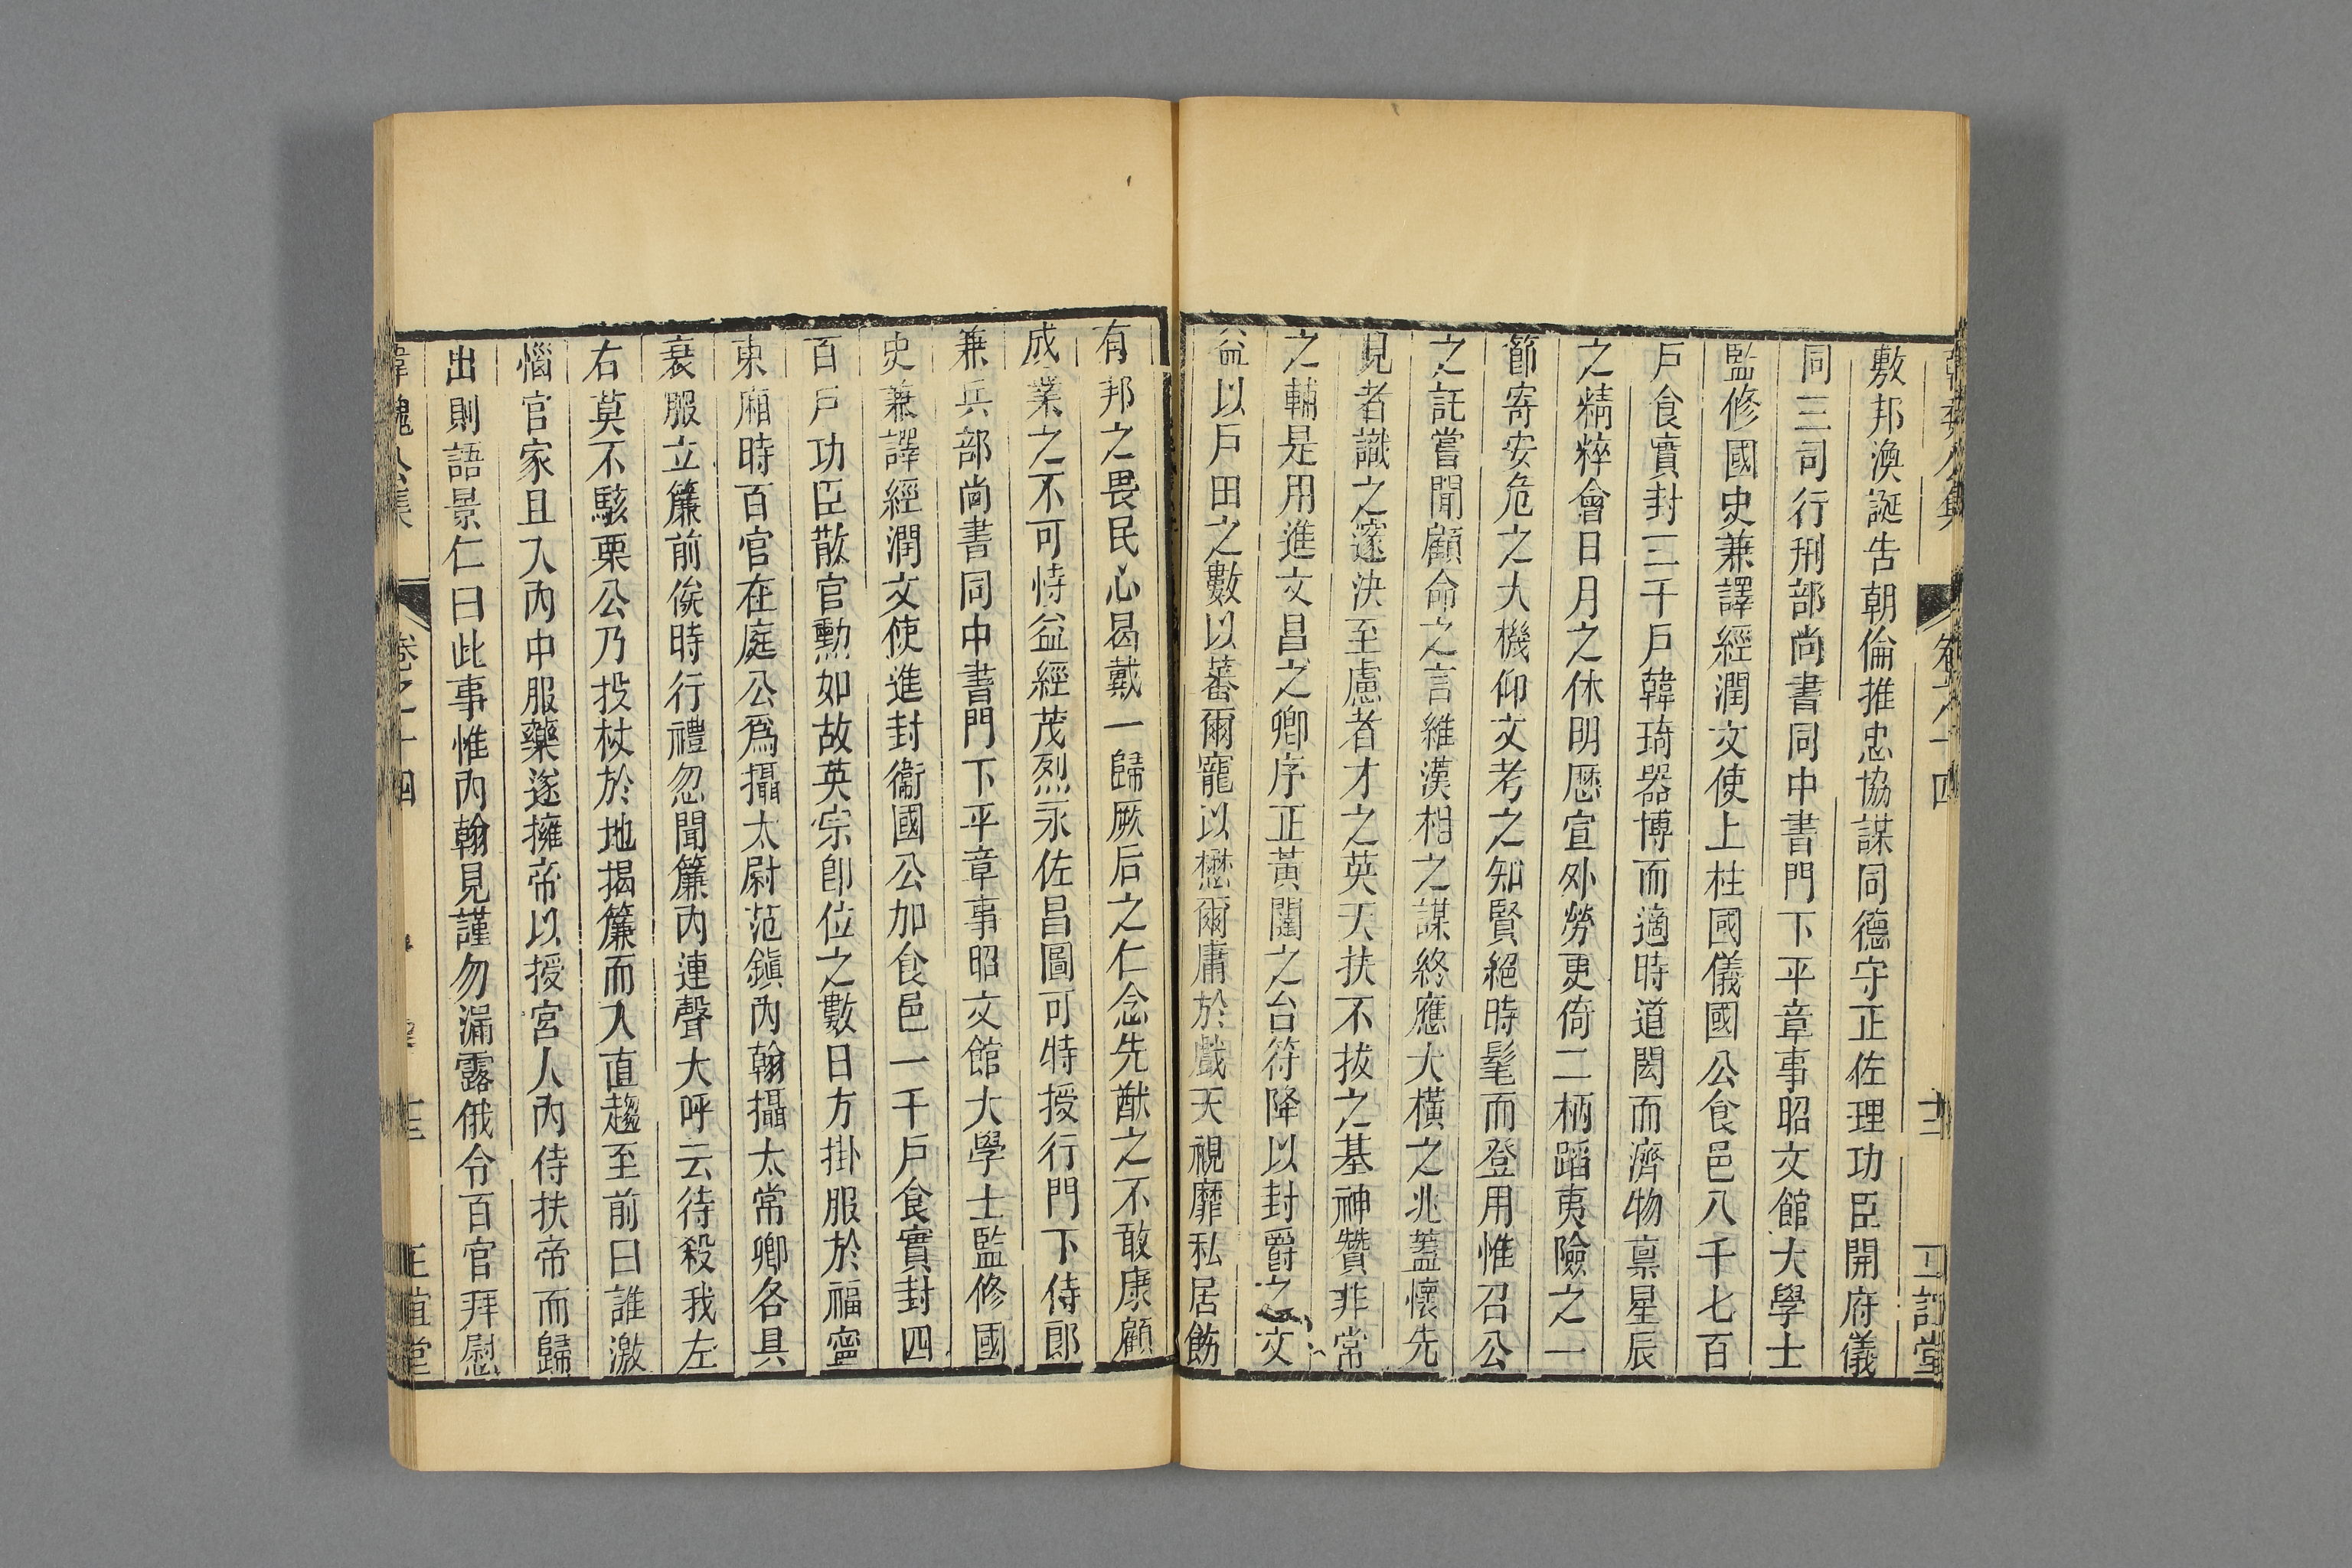 敷邦渙誕告朝倫推忠協謀同德守正佐理功臣開府儀
同三司行刑部尚書同中書門下平章事昭文館大學士
監修國史兼譯經潤文使上柱國儀國公食邑八千七百
戶食實封三千戶韓琦器博而適時道閎而濟物禀星辰
之精粹會日月之休明歷宣外勞更倚二柄蹈夷險之一
節寄安危之大機仰文考之知賢絕時髦而登用惟召公
之託嘗聞顧命之言維漢相之謀終應大橫之兆蓋懷先
見者識之邃決至慮者才之英天扶不拔之基神贊非常
之輔是用進文昌之卿序正黃闥之台符降以封爵之文
益以戶田之數以蕃爾寵以懋爾庸於戲天視靡私居飭
有邦之畏民心曷戴一歸厥后之仁念先猷之不敢康顧
成業之不可恃益經茂烈永佐昌圖可特授行門下侍郎
兼兵部尚書同中書門下平章事昭文館大學士監修國
史兼譯經潤文使進封衞國公加食邑一千戶食實封四
百戶功臣散官勳如故英宗卽位之數日方掛服於福寧
東廂時百官在庭公爲攝太尉范鎭內翰攝太常卿各具
衰服立簾前俟時行禮忽聞簾內連聲大呼云待殺我左
右莫不駭栗公乃投杖於地揭簾而入直趨至前曰誰激
惱官家且入內中服藥遂擁帝以授宮人內侍扶帝而歸
出則語景仁曰此事惟內翰見謹勿漏露俄令百官拜慰
韓魏公集 卷之十四 十三 正誼堂